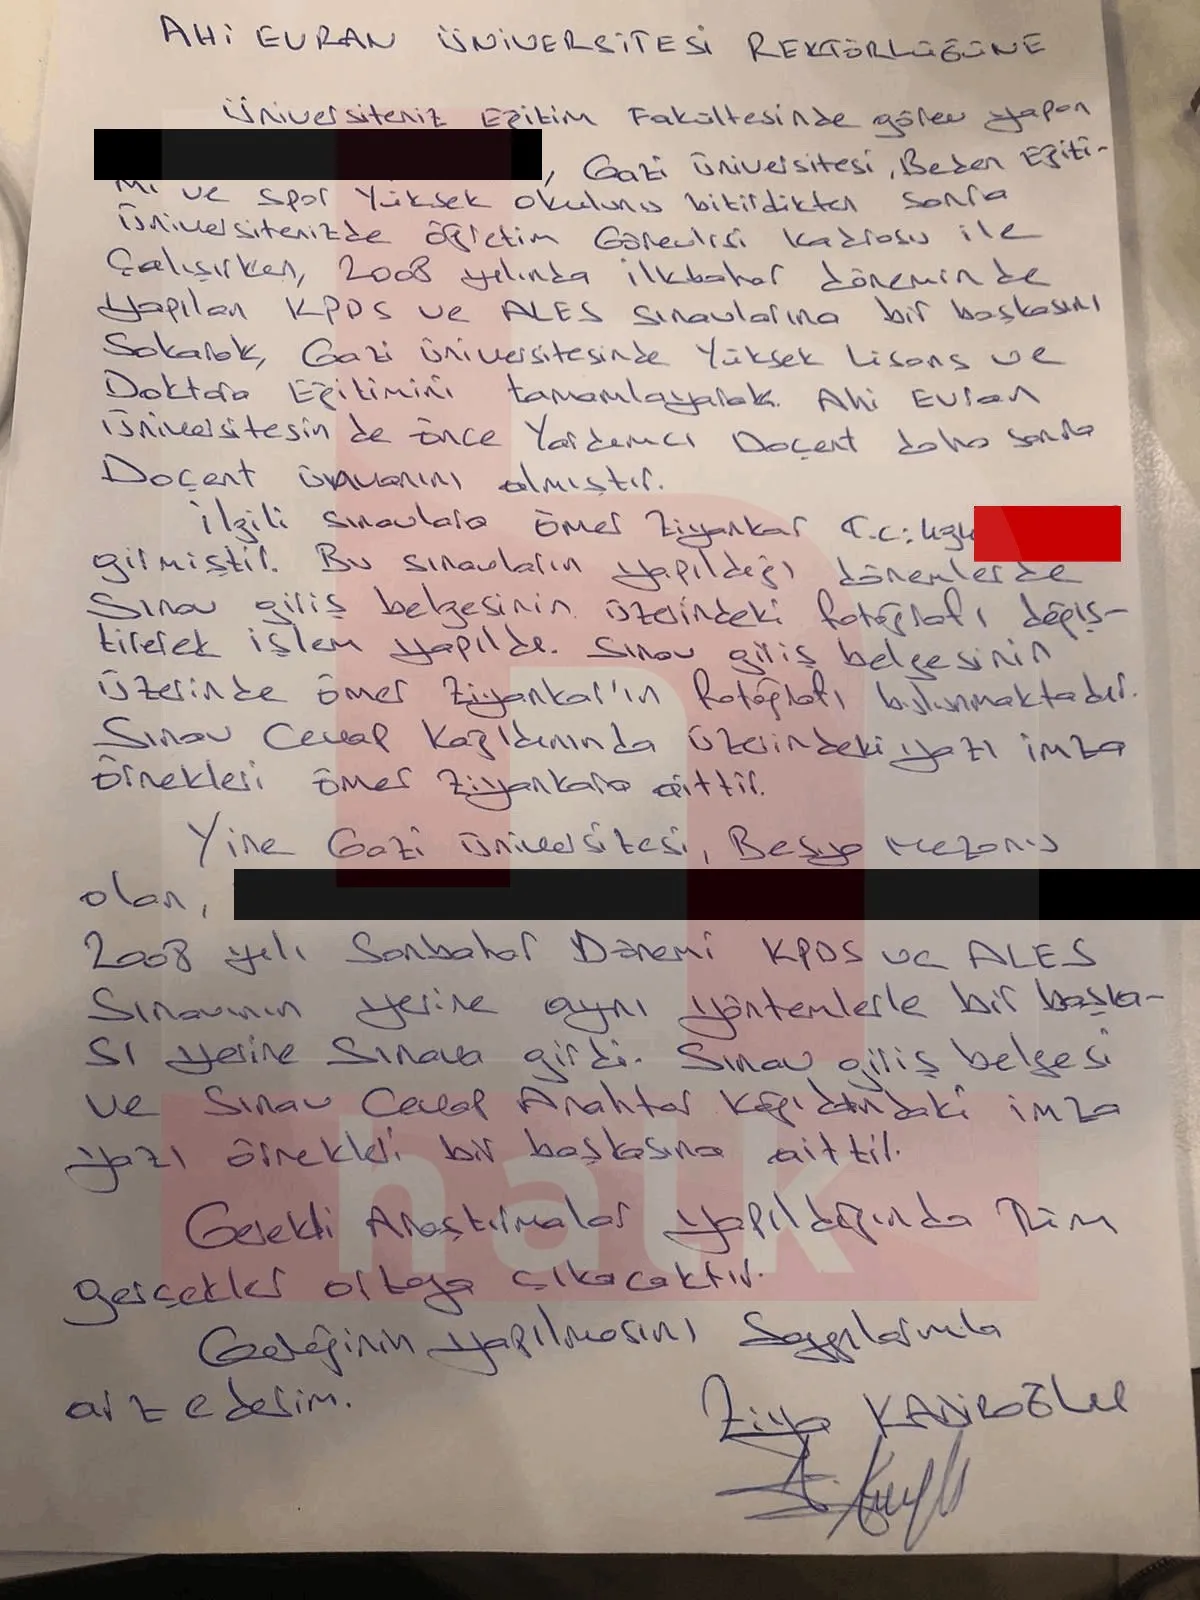 AHİ EVRAN ÜNİVERSİTESİ REKTÖRLÜĞÜNE
Üniversiteniz Eğitim Fakültesinde görev yapan
, Gazi Üniversitesi, Beden Eğiti-
mi ve Spor Yüksek okulunu bitirdikten sonra
Üniversitenizde öğretim Görevlisi kadrosu ile
Çalışırken, 2008 yılında ilkbahar döneminde
yapılan KPDS ve ALES sınavlarına bir başkasını
Sokarak, Gazi üniversitesinde Yüksek Lisans ve
Doktora Eğitimini tamamlayarak. Ahi Evran
Üniversitesinde önce Yardımcı Doçent daha sonra
Doçent ünvanını almıştır.
İlgili sınavlara ömer Ziyankar T.C:
girmiştir. Bu sınavların yapıldığı dönemlerde
Sınav giriş belgesinin üzerindeki fotoğrafı değiş-
tirerek işlem yapıldı. Sınav giriş belgesinin
üzerinde ömer Ziyankar'ın fotoğrafı bulunmaktadır.
Sınav Cevap Kağıdınında üzerindeki yazı imza
örnekleri ömer Ziyankara aittir.
Yine Gazi üniversitesi, Besyo mezunu
olan,
2008 yılı Sonbahar Dönemi KPDS ve ALES
Sınavının yerine aynı yöntemlerle bir başka-
sı yerine Sınava girdi. Sınav giriş belgesi
ve Sınav Cevap Anahtar Kağıdındaki imza
yazı örnekleri bir başkasına aittir.
Gerekli Araştırmalar yapıldığında Tüm
gerçekler ortaya çıkacaktır.
Gereğinin yapılmasını Saygılarımla
arz ederim.
Ziya KADİROĞLU
halk